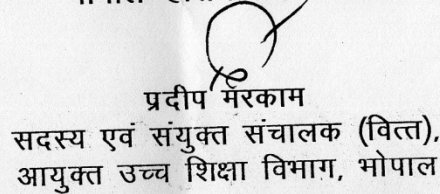 प्रदीप मरकाम
सदस्य एवं संयुक्त संचालक (वित्त),
आयुक्त उच्च शिक्षा विभाग, भोपाल